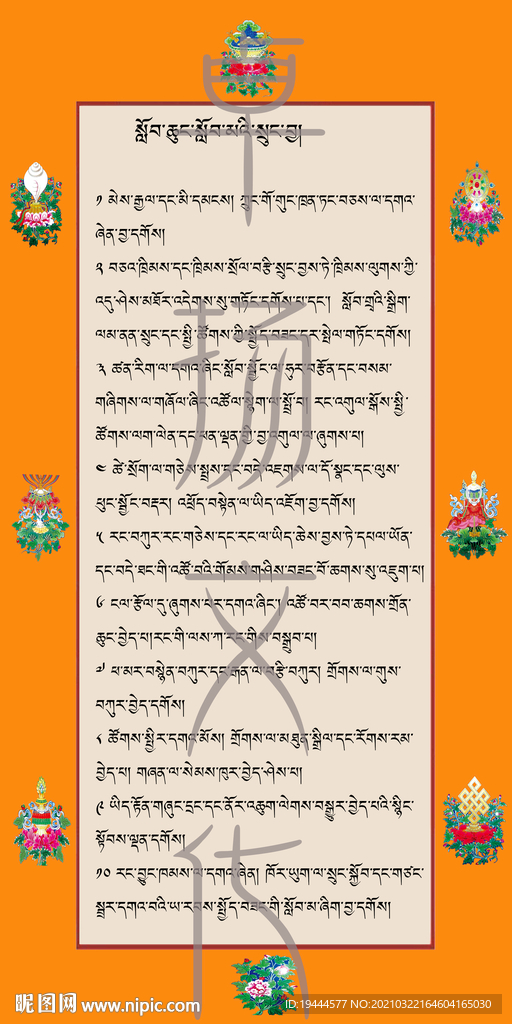 སློབ་ཆུང་སློབ་མའི་སྲུང་བྱ།
༡ མེས་རྒྱལ་དང་མི་དམངས། ཀྲུང་གོ་གུང་ཁྲན་ཏང་བཅས་ལ་དགའ་
ཞེན་བྱ་དགོས།
༢ བཅའ་ཁྲིམས་དང་ཁྲིམས་སྲོལ་བརྩི་སྲུང་བྱས་ཏེ་ཁྲིམས་ལུགས་ཀྱི་
འདུ་ཤེས་མཐོར་འདེགས་སུ་གཏོང་དགོས་པ་དང་། སློབ་གྲྭའི་སྒྲིག་
ལམ་ནན་སྲུང་དང་སྤྱི་ཚོགས་ཀྱི་སྤྱོད་བཟང་དར་སྤེལ་གཏོང་དགོས།
༣ ཚན་རིག་ལ་དགའ་ཞིང་སློབ་སྦྱོང་ལ་ཧུར་བརྩོན་དང་བསམ་
གཞིགས་ལ་གཞོལ་ཞིང་འཚོལ་སྙེག་ལ་སྤྲོ་བ། རང་འགུལ་སྒོས་སྤྱི་
ཚོགས་ལག་ལེན་དང་ཕན་ལྡན་གྱི་བྱ་འགུལ་ལ་ཞུགས་པ།
༤ ཚེ་སྲོག་ལ་གཅེས་སྤྲས་དང་བདེ་འཇགས་ལ་དོ་སྣང་དང་ལུས་
ཕུང་སྦྱོང་བརྡར། འཕྲོད་བསྟེན་ལ་ཡིད་འཇོག་བྱ་དགོས།
༥ རང་བཀུར་རང་གཅེས་དང་རང་ལ་ཡིད་ཆེས་བྱས་ཏེ་དཔལ་ཡོན་
དང་བདེ་ཐང་གི་འཚོ་བའི་གོམས་གཤིས་བཟང་བོ་ཆགས་སུ་འཇུག་པ།
༦ ངལ་རྩོལ་དུ་ཞུགས་པར་དགའ་ཞིང་། འཚོ་བར་བབ་ཆགས་གྲོན་
ཆུང་བྱེད་པ།རང་གི་ལས་ཀ་རང་གིས་བསྒྲུབ་པ།
༧ ཕ་མར་བསྙེན་བཀུར་དང་རྒན་ལ་བརྩི་བཀུར། གྲོགས་ལ་གུས་
བཀུར་བྱེད་དགོས།
༨ ཚོགས་སྤྱིར་དགའ་མོས། གྲོགས་ལ་མཐུན་སྒྲིལ་དང་རོགས་རམ་
བྱེད་པ། གཞན་ལ་སེམས་ཁུར་བྱེད་ཤེས་པ།
༩ ཡིད་རྟོན་གཞུང་དྲང་དང་ནོར་འཆུག་ལེགས་བསྒྱུར་བྱེད་པའི་སྙིང་
སྟོབས་ལྡན་དགོས།
༡༠ རང་བྱུང་ཁམས་ལ་དགའ་ཞེན། ཁོར་ཡུག་ལ་སྲུང་སྐྱོབ་དང་གཙང་
སྦྲར་དགའ་བའི་ཡ་རབས་སྤྱོད་བཟང་གི་སློབ་མ་ཞིག་བྱ་དགོས།
昵图网 www.nipic.com
ID:19444577 NO:20210322164604165030